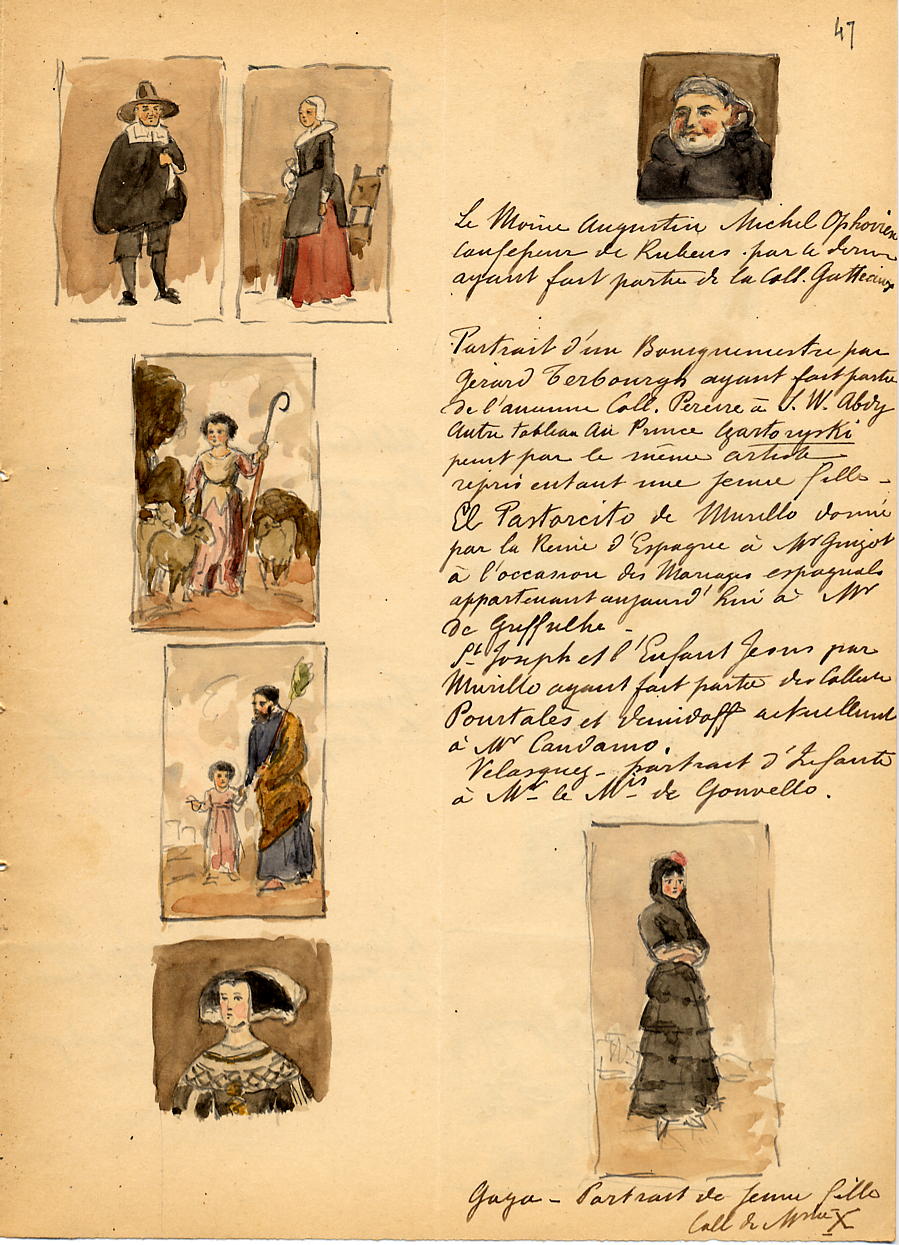 47
Le Moine Augustin Michel Ophovien
confesseur de Rubens par ce dernier
ayant fait partie de la Coll. Gatteaux
Portrait d'un Bourguemestre par
Gérard Terbourgh ayant fait partie
de l'ancienne Coll. Pereire à S. W. Abdy
Autre tableau Au Prince Czartoryski
peint par le même artiste
représentant une jeune fille -
El Pastorcito de Murillo donné
par la Reine d'Espagne à Mr Guizot
à l'occasion des Mariages espagnols
appartenant aujourd'hui à Mr
de Greffulhe -
St Joseph et l'Enfant Jesus par
Murillo ayant fait partie des
Pourtalès et Demidoff actuellement
à Mr Candamo.
Velasquez - portrait d'Infante
à Mr le Mis de Gouvello.
Goya - Portrait de Jeune fille
Coll de Mme X